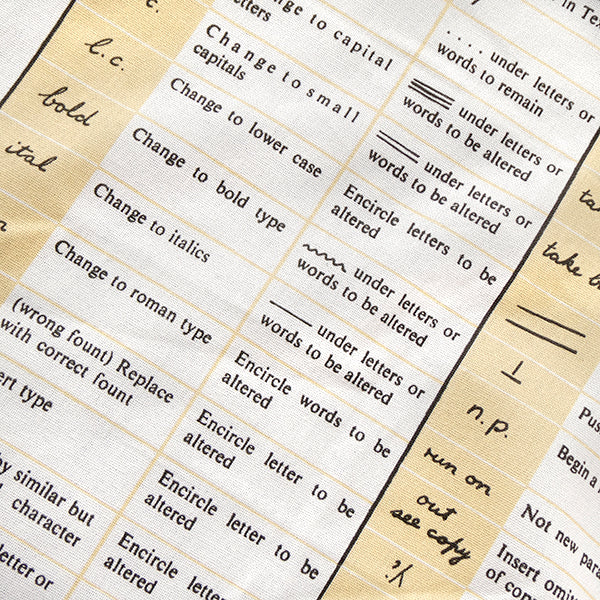 in Tex
c.
Change to capital
letters
. . . . under letters or
words to remain
l.c.
Change to small
capitals
under letters or
words to be altered
bold
Change to lower case
under letters or
words to be altered
ital
Change to bold type
Encircle letters to be
altered
Change to italics
under letters or
words to be altered
Change to roman type
under letters or
words to be altered
(wrong fount) Replace
with correct fount
Encircle words to be
altered
ert type
Encircle letter to be
altered
by similar but
character
Encircle letter to be
altered
letter or
Encircle letter to be
altered
take
n.p.
Begin a
run on
Not new para
out
see copy
Insert omit
of cop